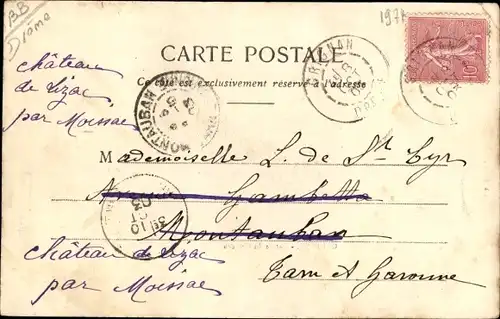 BB
Drôme
197A
CARTE POSTALE
Ce côté est exclusivement réservé à l'adresse
GRIGNAN
MONTAUBAN
10
château
de Lizac
par Moissac
Mademoiselle L. de St Cyr
Avenue Gambetta
Montauban
Tarn et Garonne
château de Lizac
par Moissac